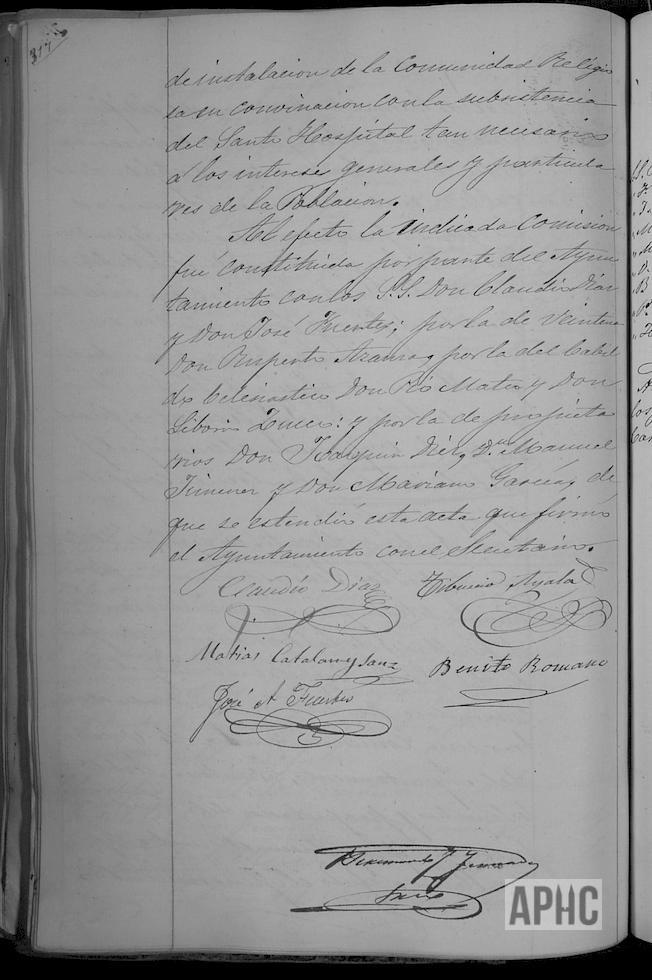 317
de instalacion de la Comunidad Religio
sa su convinacion con la subsistencia
del Santo Hospital tan necesario
á los intereses generales y particula
res de la Poblacion.
Al efecto la indicada Comision
fué constituida por parte del Ayun
tamiento con los S.S. Don Claudio Diaz
y Don José Fuertes; por la de Veintena
Don Ruperto por la del Cabil
do Eclesiastico Don Pio Mateo y Don
Liborio y por la de propieta
rios Don Joaquin Diez, Dn. Manuel
Jimenez y Don Mariano Garcia, de
que se estendió esta acta que firmó
el Ayuntamiento con el Secretario.
Claudio Diaz
Tiburcio Ayala
Matias Catalan y Sanz
Benito Romano
José A Fuertes
Raimundo
APHC